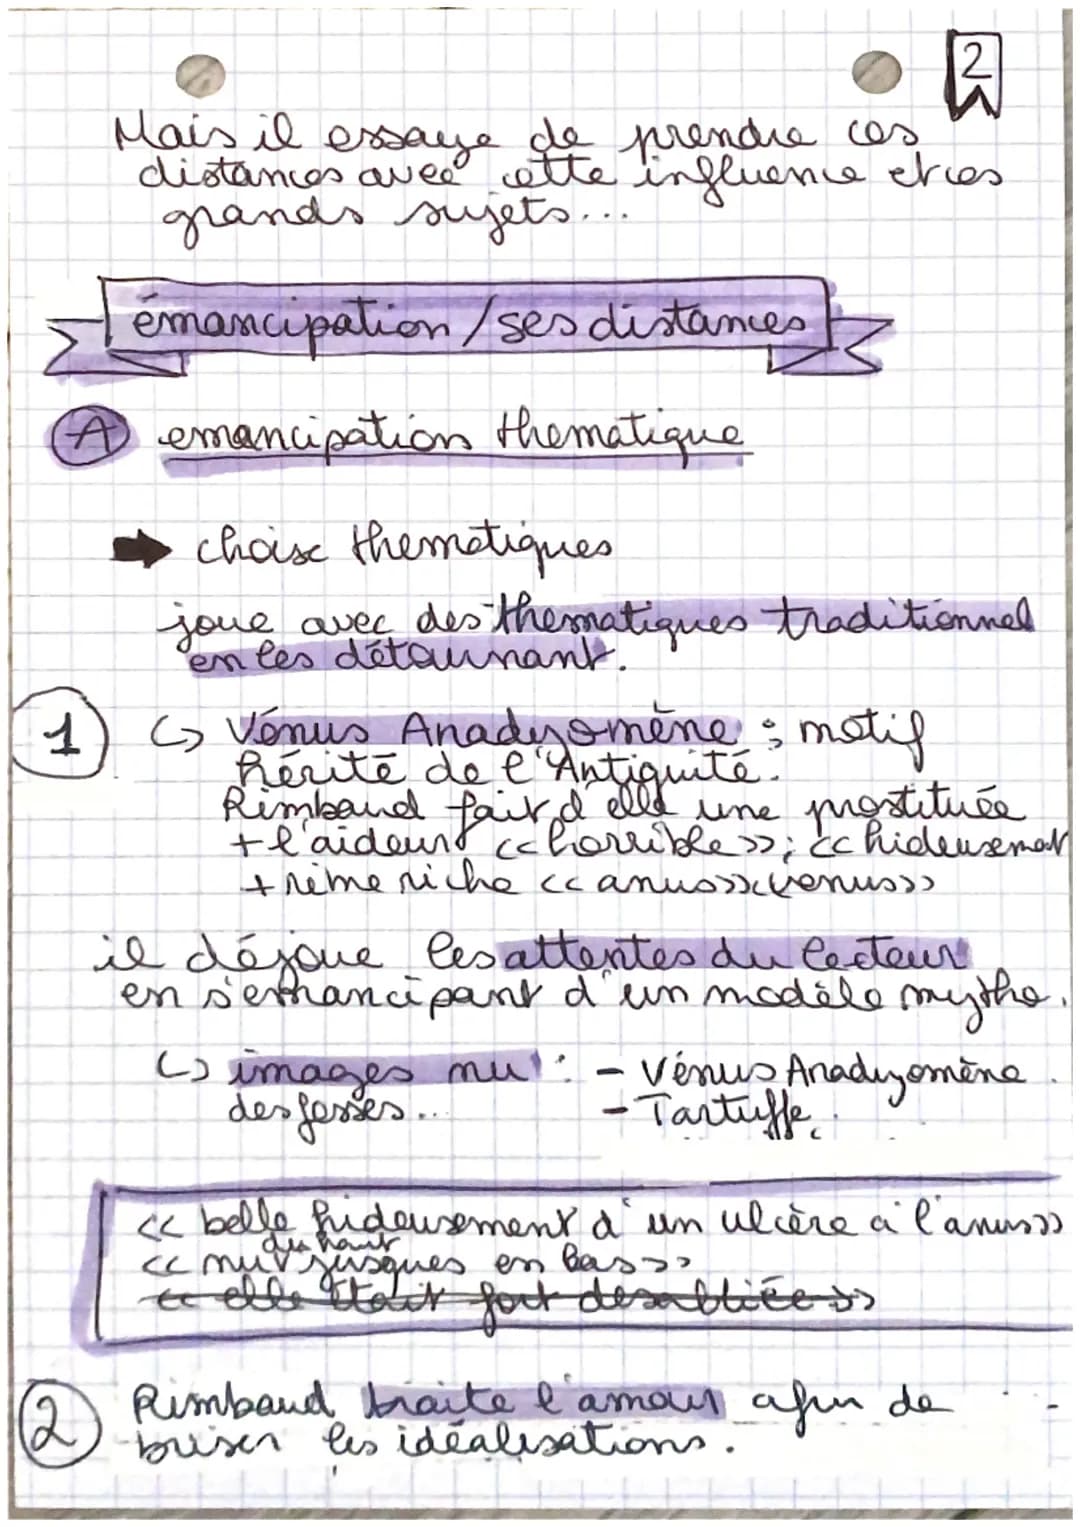 2
Mais il essaye de prendre ces
distances avec cette influence et ces
grands sujets...
émancipation / ses distances
A emancipation thematique
➡ choix thematiques
joue avec des thematiques traditionnel
en les détournant.
1 ↳ Vénus Anadyomène : motif
hérité de l'Antiquité.
Rimbaud fait d'elle une prostituée
+ l'aideur << horrible >> ; << hideusemat
+ rime riche << anus >> << venus >>
il déjoue les attentes du lecteur
en s'emancipant d'un modèle mytho.
↳ images nu : - Vénus Anadyomène.
des fesses... - Tartuffe.
<< belle hideusement d'un ulcère à l'anus >>
<< nu du haut jusques en bas >>
<< elle était fort desabliée >>
2 Rimbaud traite l'amour afin de
briser les idéalisations.